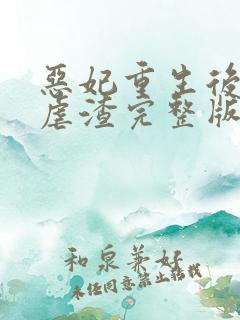 惡妃重生後
虐渣完整版
和泉兼好
未经同意禁止转载